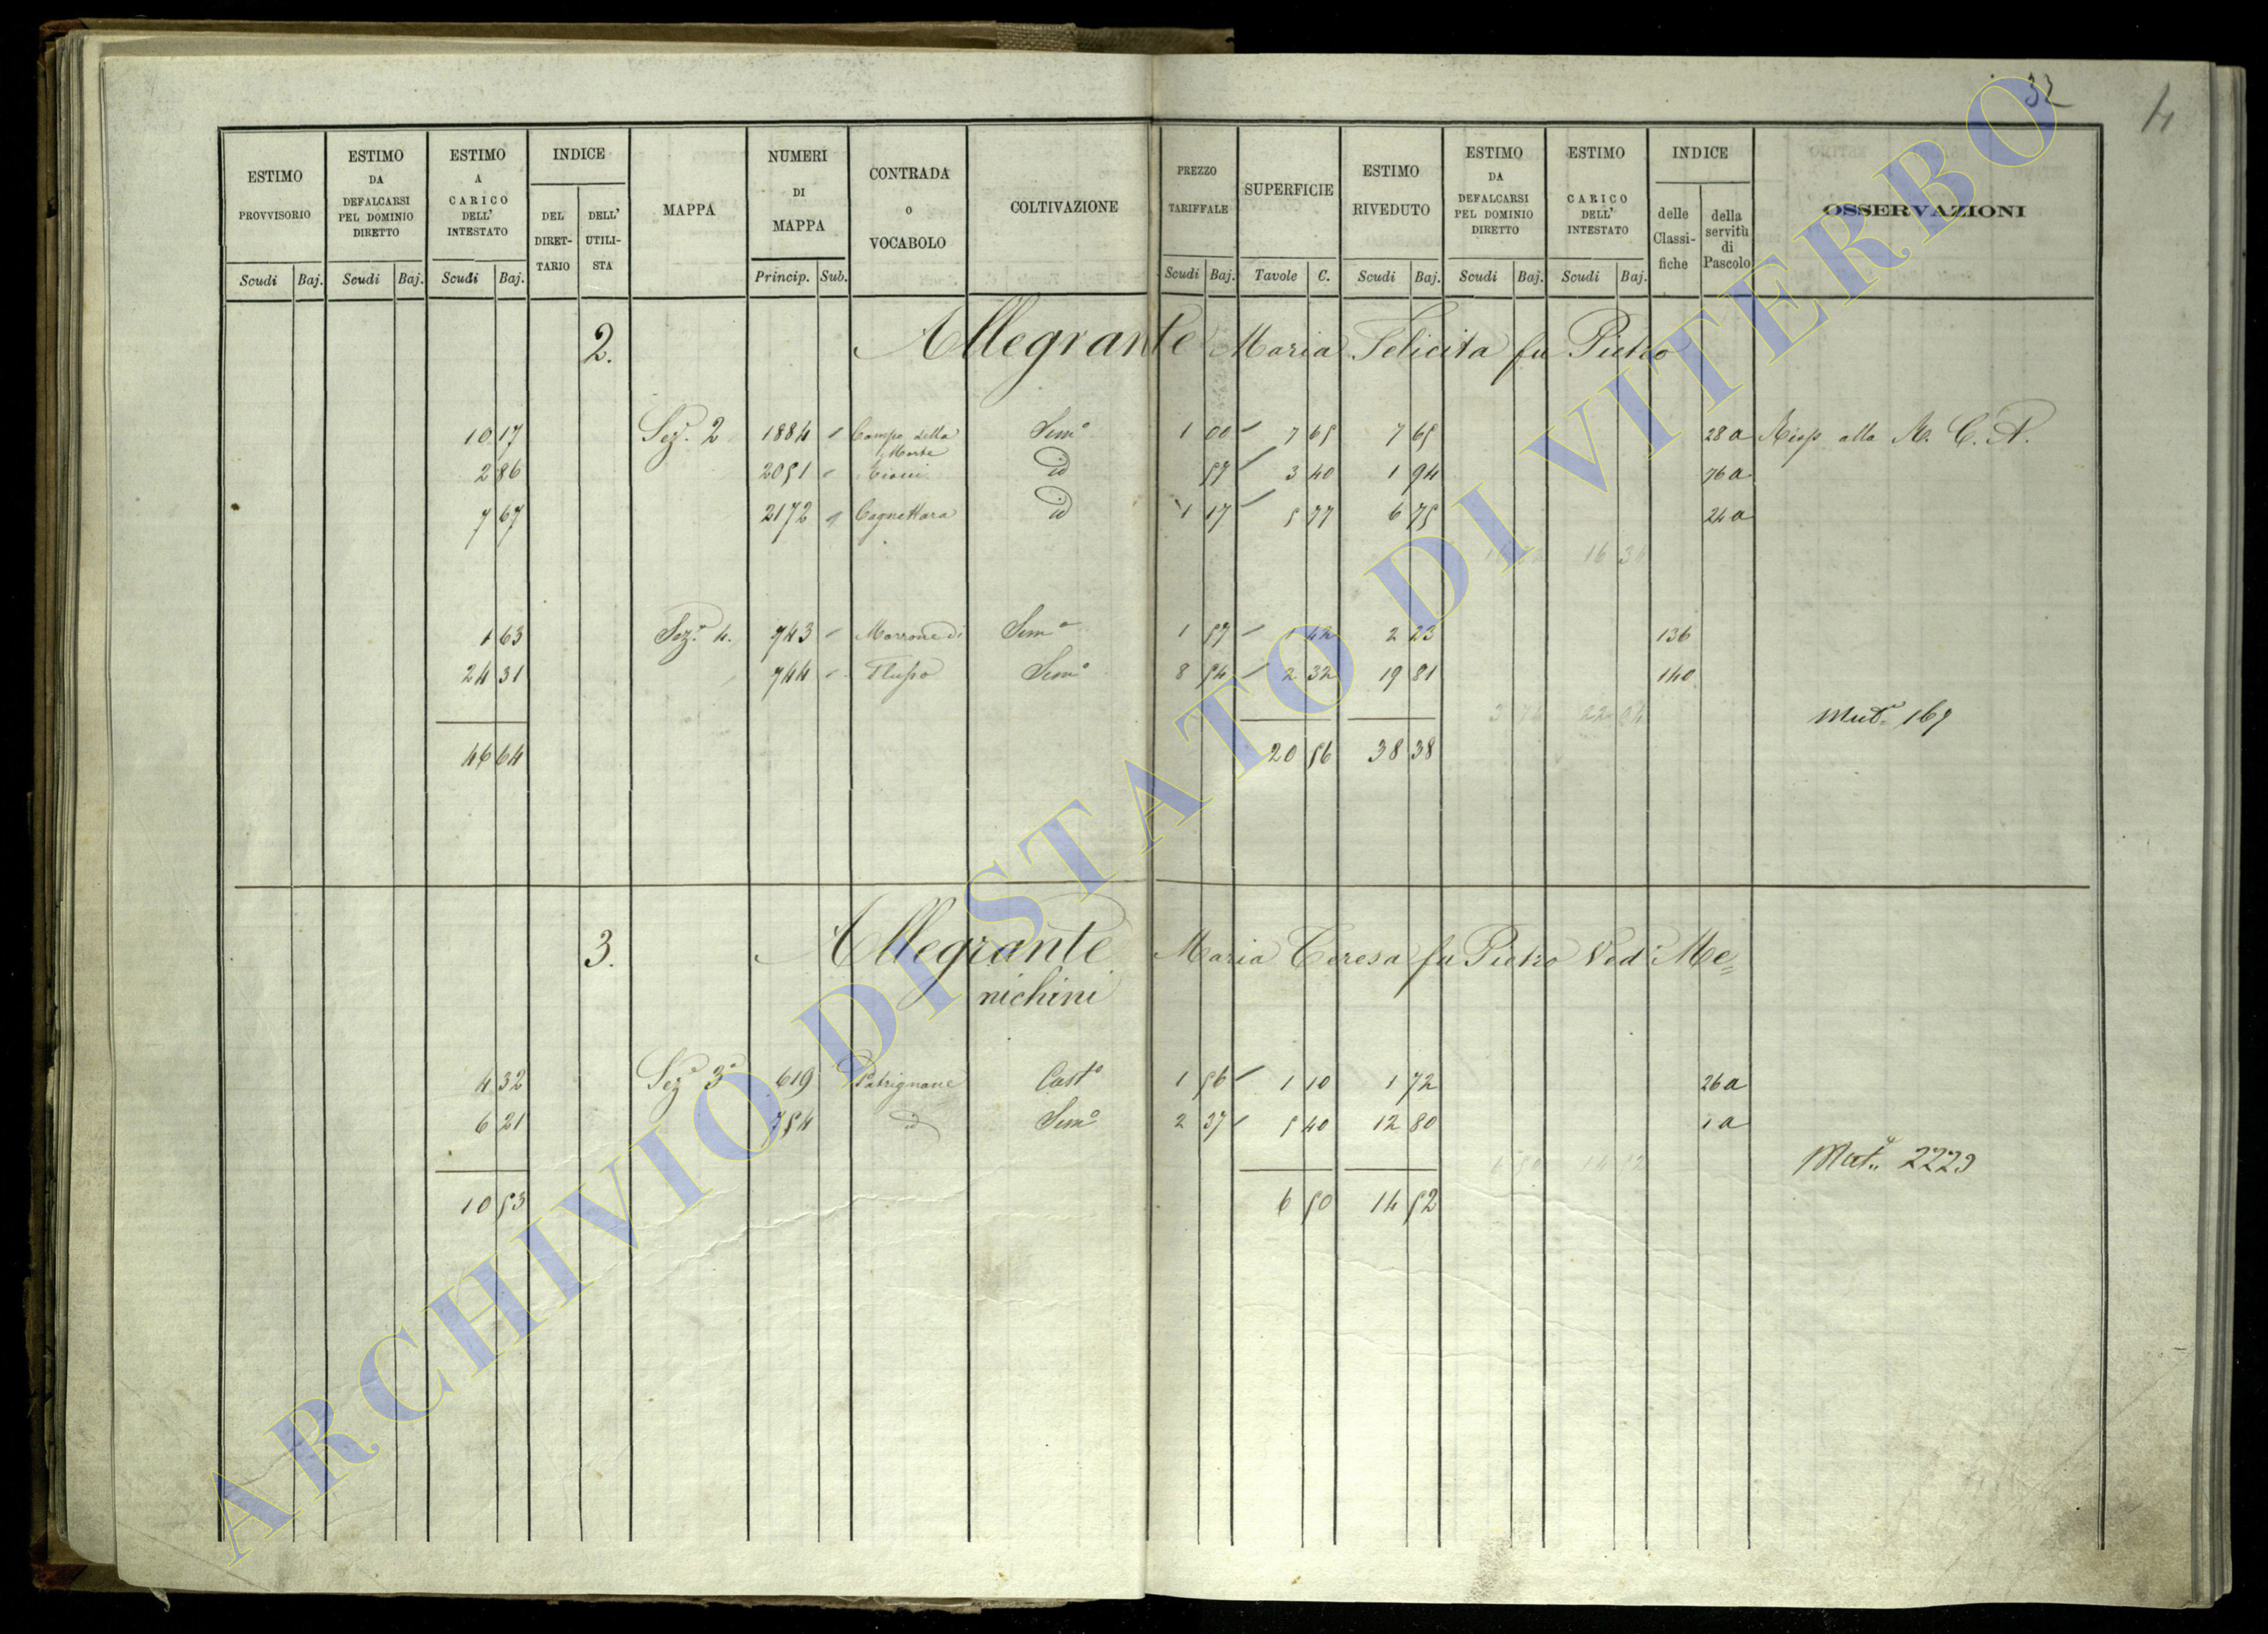 32
4
ESTIMO PROVVISORIO
ESTIMO DA DEFALCARSI PEL DOMINIO DIRETTO
ESTIMO A CARICO DELL' INTESTATO
INDICE
DEL DIRET-TARIO
DELL' UTILI-STA
MAPPA
NUMERI DI MAPPA
CONTRADA O VOCABOLO
COLTIVAZIONE
PREZZO TARIFFALE
SUPERFICIE
ESTIMO RIVEDUTO
ESTIMO DA DEFALCARSI PEL DOMINIO DIRETTO
ESTIMO CARICO DELL' INTESTATO
INDICE
delle Classi-fiche
della servitù di Pascolo
OSSERVAZIONI
Scudi Baj. Scudi Baj. Scudi Baj. Princip. Sub. Scudi Baj. Tavole C. Scudi Baj. Scudi Baj. Scudi Baj.
2. Allegrante Maria Felicita fu Pietro
10 17 Sez. 2 1884 Campo della Morte Sem.o 1 00 7 65 7 65 28 a Risp alla M. C. A.
2 86 2051 id 57 3 40 1 94 76 a
7 67 2172 Cagnettara id 1 17 5 77 6 75 24 a
16 34
1 63 Sez.e 4. 743 Marrone di Sem.o 1 57 1 42 2 23 136
24 31 744 Flusso Sem.o 8 54 2 32 19 81 140
3 74 22 04 Mut. 167
46 64 20 56 38 38
3. Allegrante Maria Teresa fu Pietro Ved Me=
nichini
4 32 Sez.e 3a 619 Patrignane Cast.o 1 56 1 10 1 72 26 a
6 21 754 id Sem.o 2 37 5 40 12 80 1 a
6 50 14 52 Mut. 2229
10 53 6 50 14 52
ARCHIVIO DI STATO DI VITERBO